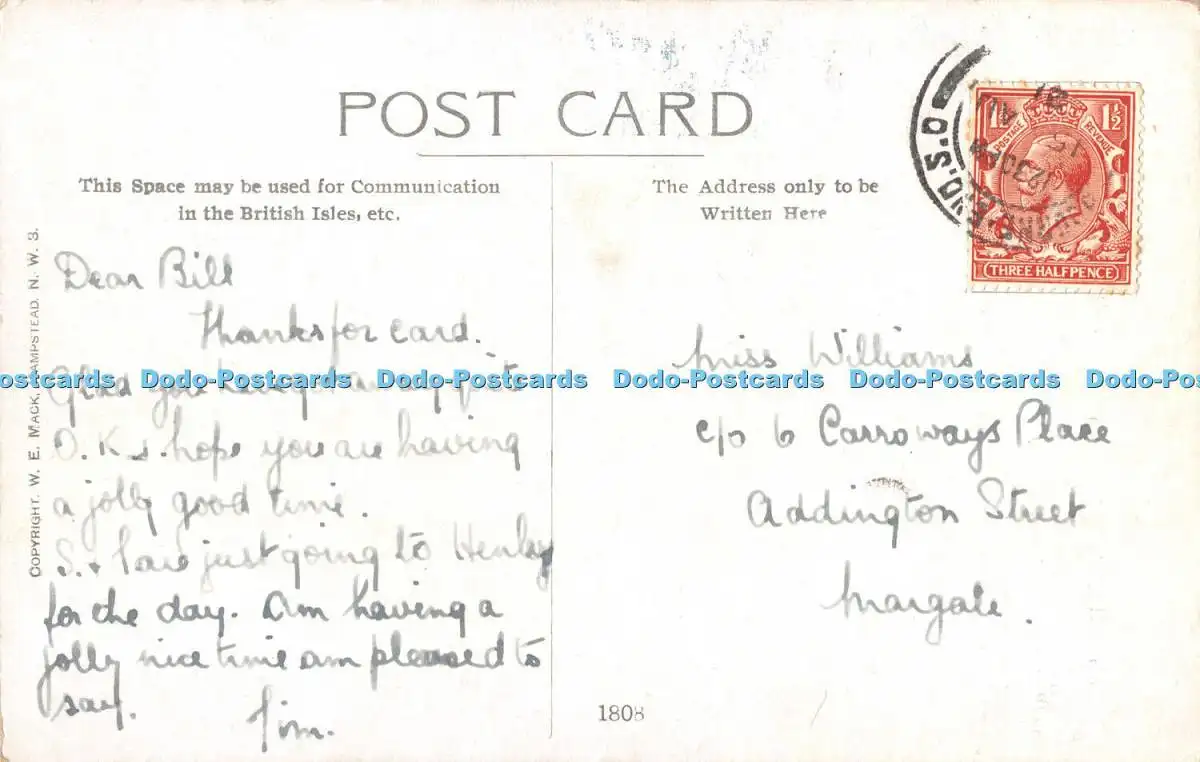 POST CARD
This Space may be used for Communication
in the British Isles, etc.
The Address only to be
Written Here
COPYRIGHT. W. E. MACK, HAMPSTEAD. N. W. 3.
Dear Bill
Thanks for card.
Glad you have
O.K. hope you are having
a jolly good time.
S. + I are just going to Henley
for the day. Am having a
jolly nice time am pleased to
say.
Jim.
Miss Williams
c/o 6 Carroways Place
Addington Street
Margate.
1½ 1½
POSTAGE REVENUE
THREE HALFPENCE
S.O
1808
Dodo-Postcards Dodo-Postcards Dodo-Postcards Dodo-Postcards Dodo-Postcards